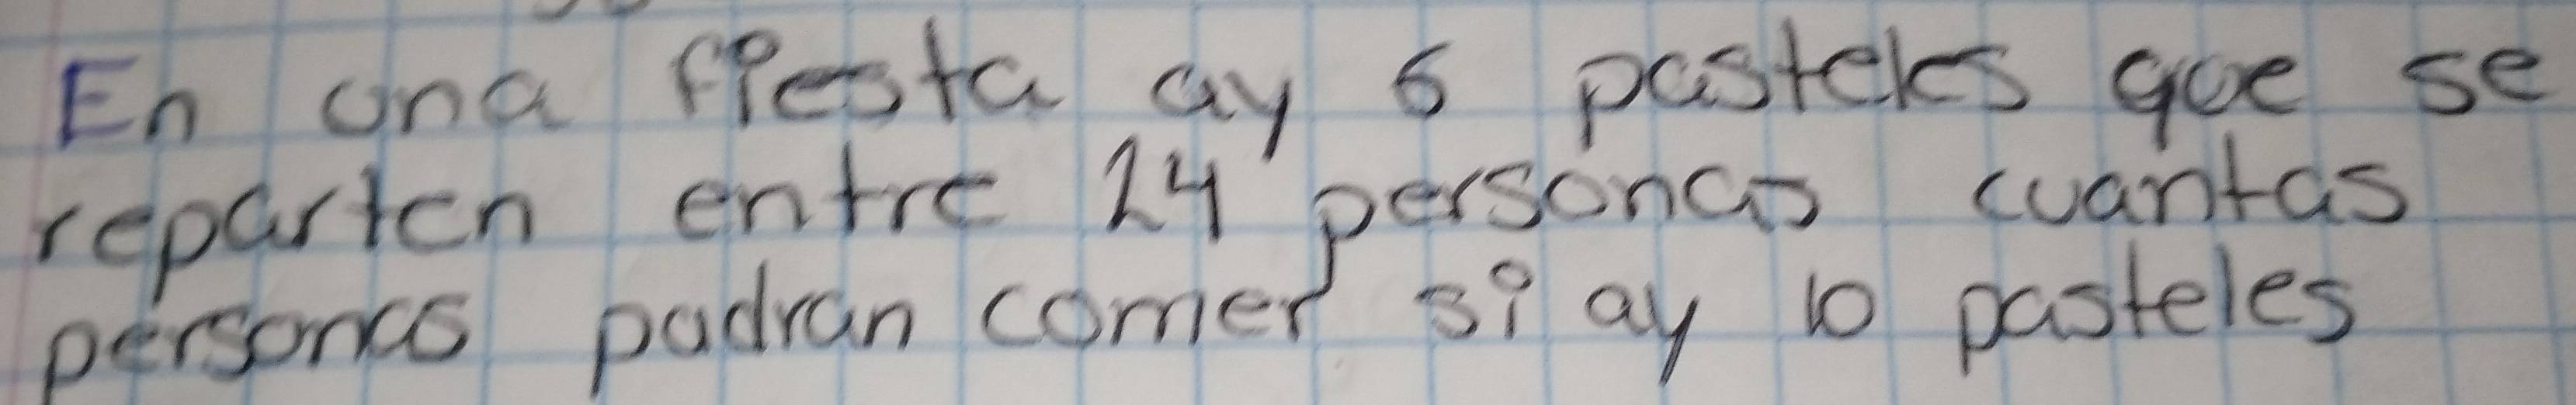 En una fiesta ay 6 pasteles que se
reparten entre 24 personas cuantas
personas padran comer si ay 10 pasteles